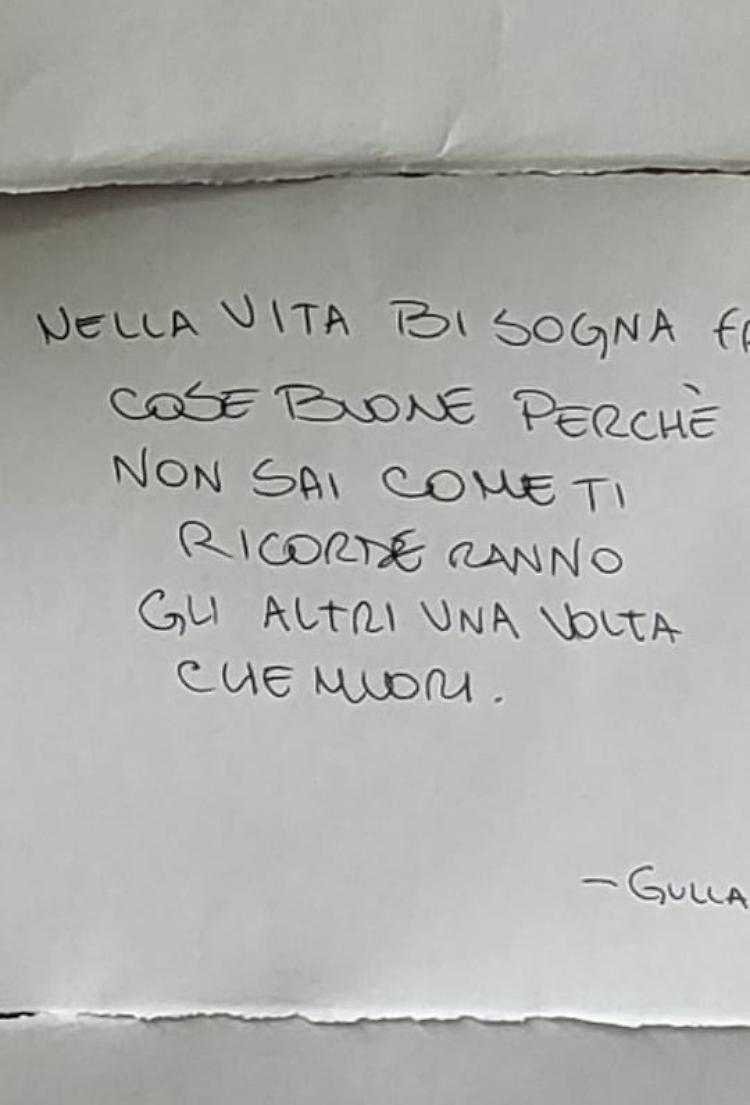 NELLA VITA BISOGNA FA
COSE BUONE PERCHÈ
NON SAI COME TI
RICORDERANNO
GLI ALTRI UNA VOLTA
CHE MUORI.
- GULLA